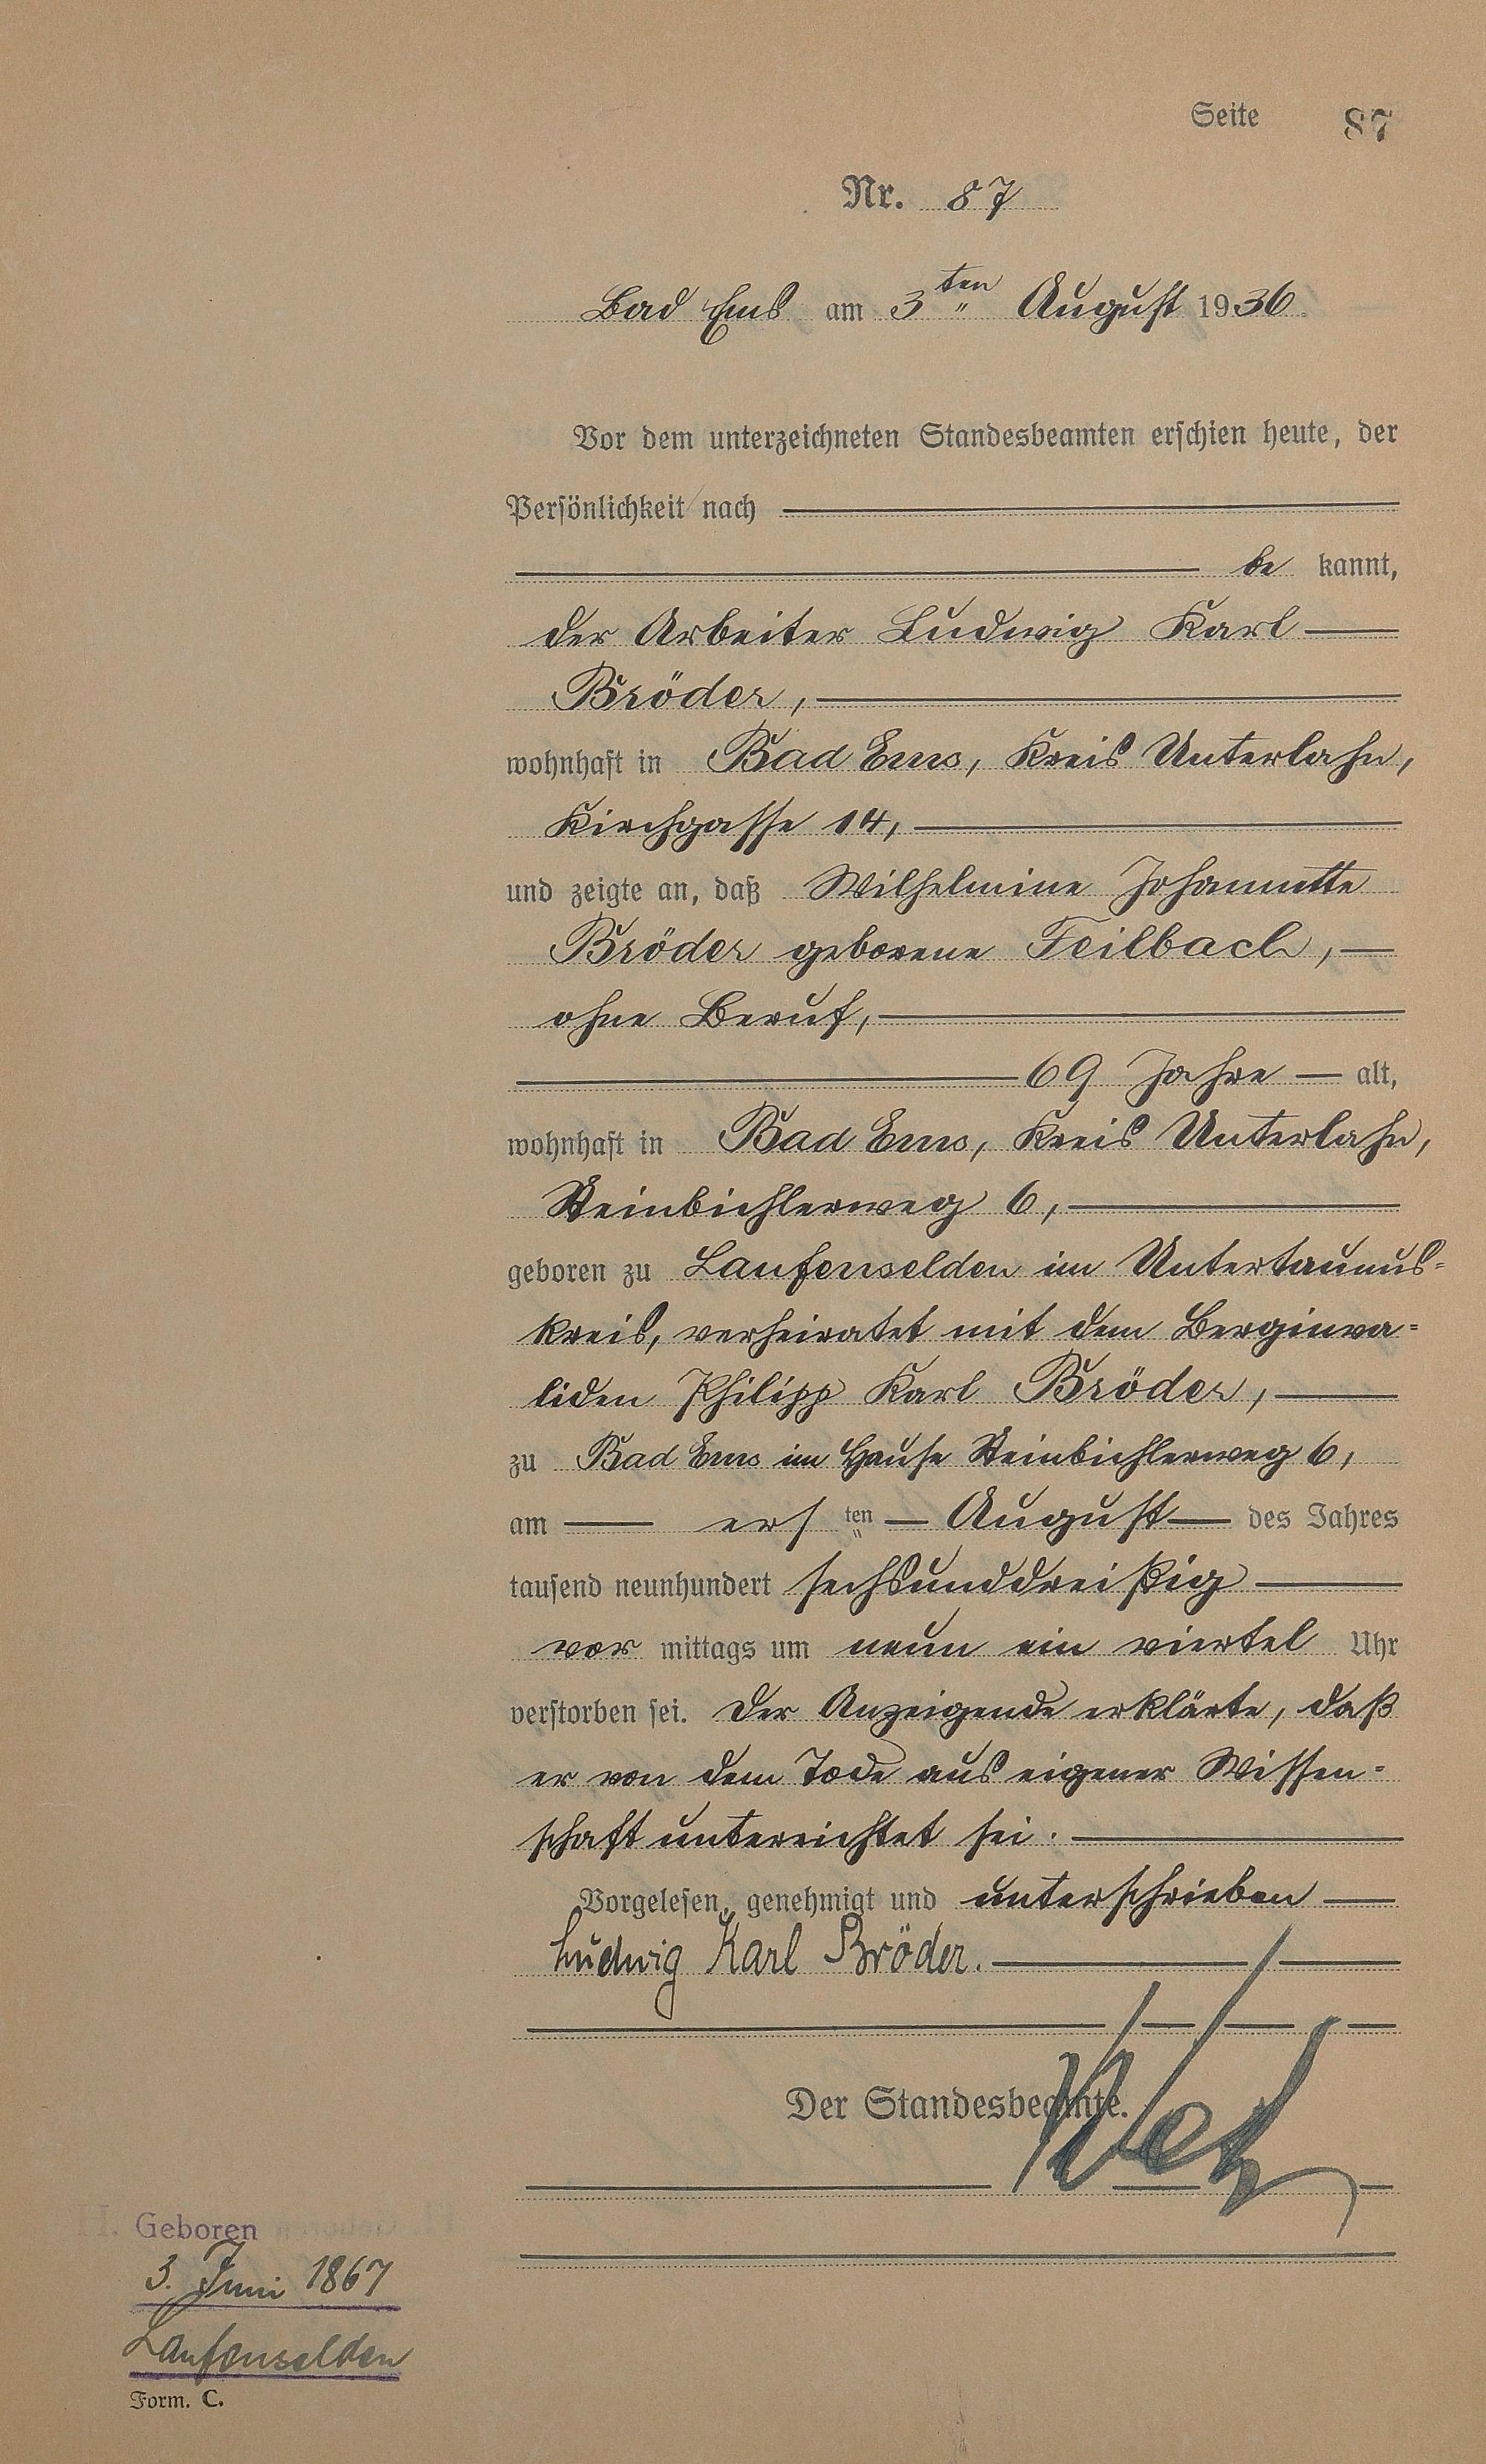 Seite 87
Nr. 87
Bad Ems am 3ten August 1936.
Vor dem unterzeichneten Standesbeamten erschien heute, der
Persönlichkeit nach
be kannt,
der Arbeiter Ludwig Karl
Bröder,
wohnhaft in Bad Ems, Kreis Unterlahn,
Kirchgasse 14,
und zeigte an, daß Wilhelmine Johannette
Bröder geborene Feilbach,
ohne Beruf,
69 Jahre alt,
wohnhaft in Bad Ems, Kreis Unterlahn,
Steinbichlerweg 6,
geboren zu Laufenselden im Untertaunus=
kreis, verheiratet mit dem Berginva=
liden Philipp Karl Bröder,
zu Bad Ems im Hause Steinbichlerweg 6,
am ersten August des Jahres
tausend neunhundert sechsunddreißig
vor mittags um neun ein viertel Uhr
verstorben sei. Der Anzeigende erklärte, daß
er von dem Tode aus eigener Wissen=
schaft unterrichtet sei.
Vorgelesen, genehmigt und unterschrieben
Ludwig Karl Bröder.
Der Standesbeamte.
Geboren
3. Juni 1867
Laufenselden
Form. C.